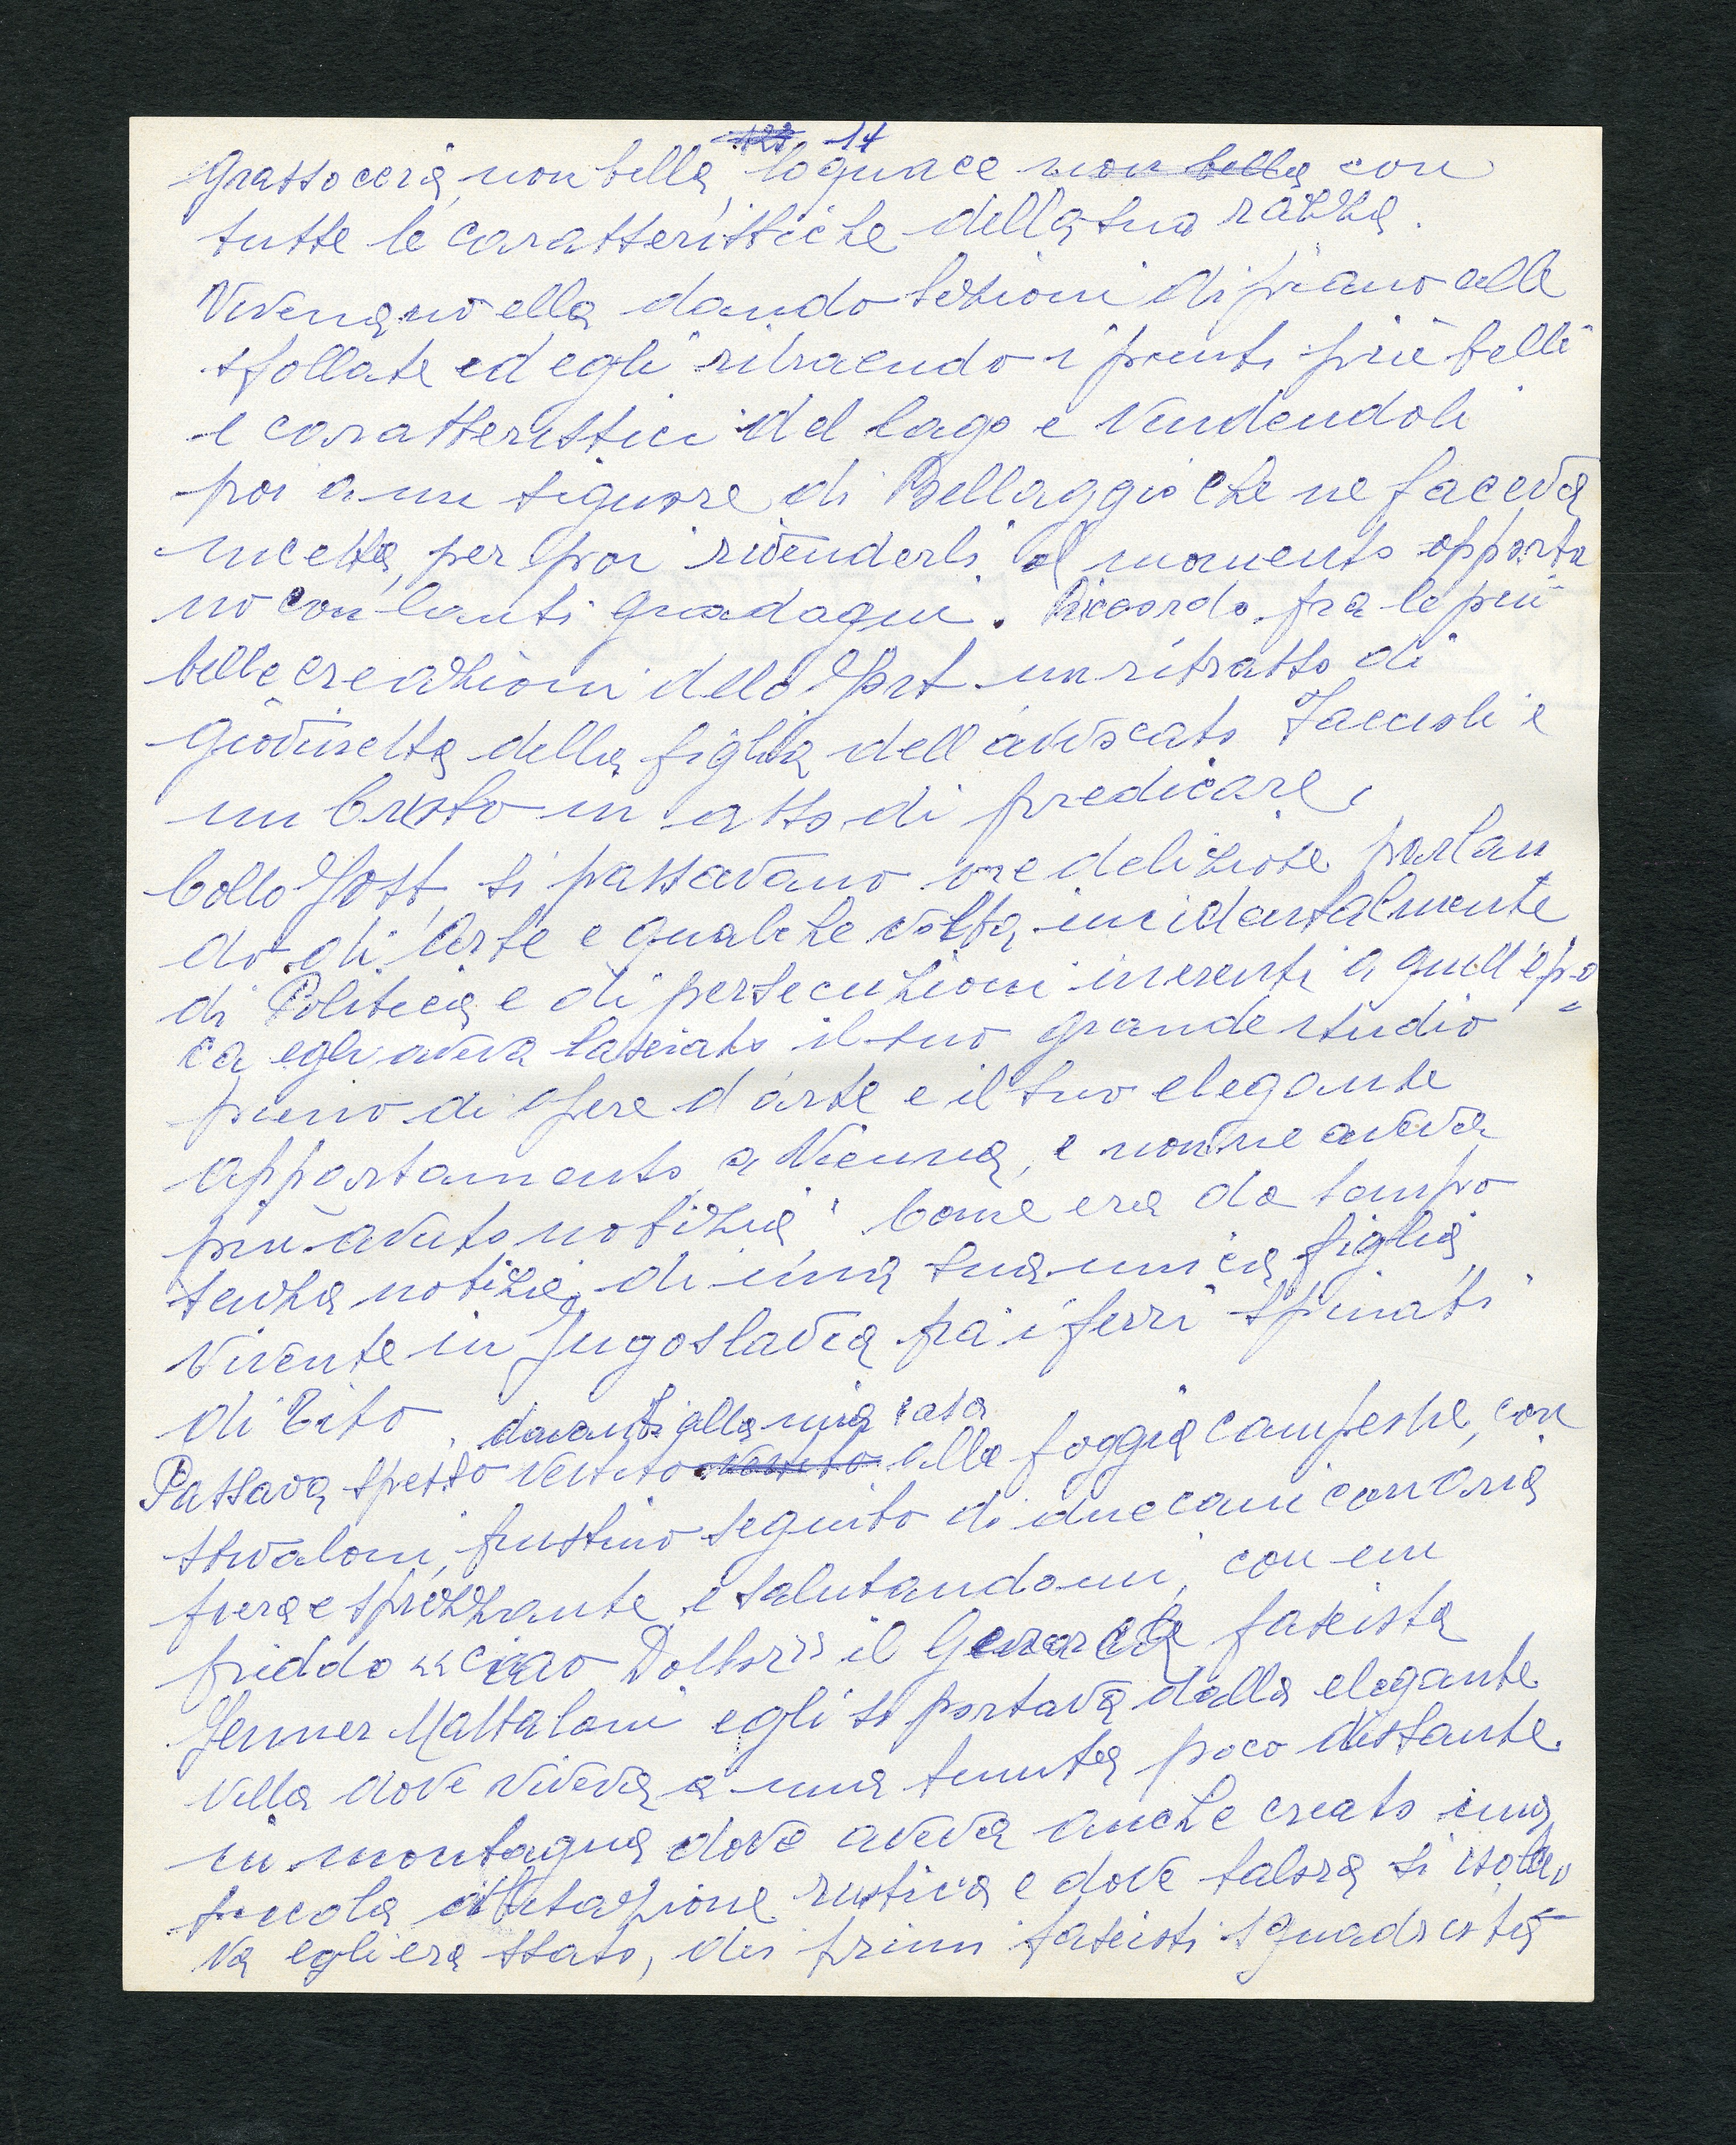 14
grassoccia, non bella, loquace non bella con
tutte le caratteristiche della sua razza.
Vivevano ella dando lezioni di piano alle
sfollate ed egli ritraendo i punti più belli
e caratteristici del lago e vendendoli
poi a un signore di Bellaggio che ne faceva
incetta, per poi rivenderli al momento opportu
no con lauti guadagni. Ricordo fra le più
belle creazioni dello Jost un ritratto di
giovinetta della figlia dell'avvocato Faccioli e
un Cristo in atto di predicare,
Collo Jost, si passavano ore deliziose parlan
do di Arte e qualche volta incidentalmente
di Politica e di persecuzioni inerenti a quell'epo=
ca egli aveva lasciato il suo grande studio
pieno di opere d'arte e il suo elegante
appartamento a Vienna, e non ne aveva
più avuto notizia. Come era da tempo
senza notizie di una sua unica figlia
vivente in Jugoslavia fra i ferri spinati
di Tito.
davanti alla mia casa
Passava spesso vestito vestito alla foggia campestre, con
stivaloni, frustino seguito di due cani con aria
fiera e sprezzante e salutandomi, con un
freddo «ciao Dottor» il Gerarca fascista
Jenner Mattaloni egli si portava dalla elegante
villa dove viveva a una tenuta poco distante
in montagna dove aveva anche creato una
piccola abitazione rustica e dove talora si isola
va egli era stato, dei primi fascisti squadrista